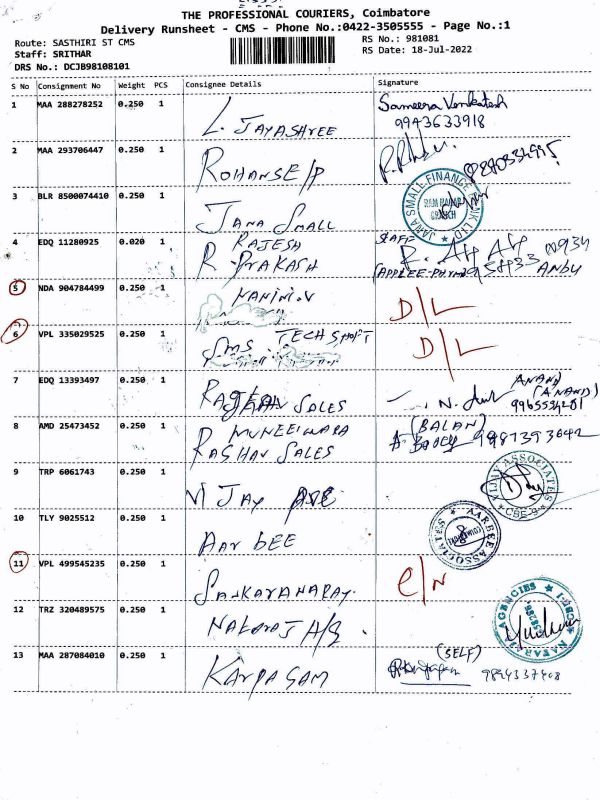 THE PROFESSIONAL COURIERS, Coimbatore
Delivery Runsheet - CMS - Phone No.:0422-3505555 - Page No.:1
Route: SASTHIRI ST CMS
RS No.: 981081
Staff: SRITHAR
RS Date: 18-Jul-2022
DRS No.: DCJB98108101
S No Consignment No Weight PCS Consignee Details Signature
1 MAA 288278252 0.250 1 L. JAYASHREE Sameera Venkatesh
9943633918
2 MAA 293706447 0.250 1 ROHANSE/P
3 BLR 8500074410 0.250 1 JANA SMALL JANA SMALL FINANCE BANK LTD
BRANCH
4 EDQ 11280925 0.020 1 RAJESH STAFF
R. PRAKASH
5 NDA 904784499 0.250 1 NANINI.V D/L
6 VPL 335029525 0.250 1 SMS TECH SHOPT D/L
7 EDQ 13393497 0.250 1 SALES ANAND
(ANAND)
9965534201
8 AMD 25473452 0.250 1 R MUNEEIWARA (BALAN)
RAGHAV SALES
9 TRP 6061743 0.250 1 VIJAY VIJAY ASSOCIATES
CBE-9
10 TLY 9025512 0.250 1 AAR BEE AARBEE ASSOCIATES
11 VPL 499545235 0.250 1 SANKARANARAY. C/N
12 TRZ 320489575 0.250 1 NATARAJ A/G NATARAJ AGENCIES
13 MAA 287084010 0.250 1 KARPAGAM (SELF)
9894337408